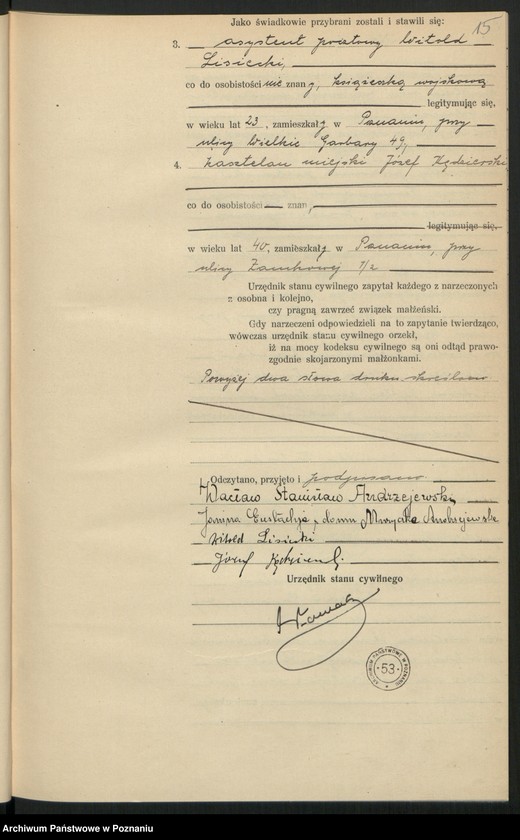 15
Jako świadkowie przybrani zostali i stawili się:
3. asystent pocztowy Witold
Lisiecki,
co do osobistości nie znany, książeczką wojskową
legitymując się,
w wieku lat 23, zamieszkały w Poznaniu, przy
ulicy Wielkie Garbary 49,
4. kasztelan miejski Józef Kędzierski
co do osobistości znan,
legitymując się.
w wieku lat 40, zamieszkały w Poznaniu, przy
ulicy Zamkowej 1/2
Urzędnik stanu cywilnego zapytał każdego z narzeczonych
z osobna i kolejno,
czy pragną zawrzeć związek małżeński.
Gdy narzeczeni odpowiedzieli na to zapytanie twierdząco,
wówczas urzędnik stanu cywilnego orzekł,
iż na mocy kodeksu cywilnego są oni odtąd prawo-
zgodnie skojarzonymi małżonkami.
Powyżej dwa słowa druku skreślono
Odczytano, przyjęto i podpisano
Wacław Stanisław Andrzejewski
Janina Eustachja z domu Andrzejewska
Witold Lisiecki
Józef
Urzędnik stanu cywilnego
ARCHIWUM PAŃSTWOWE W POZNANIU
53
Archiwum Państwowe w Poznaniu